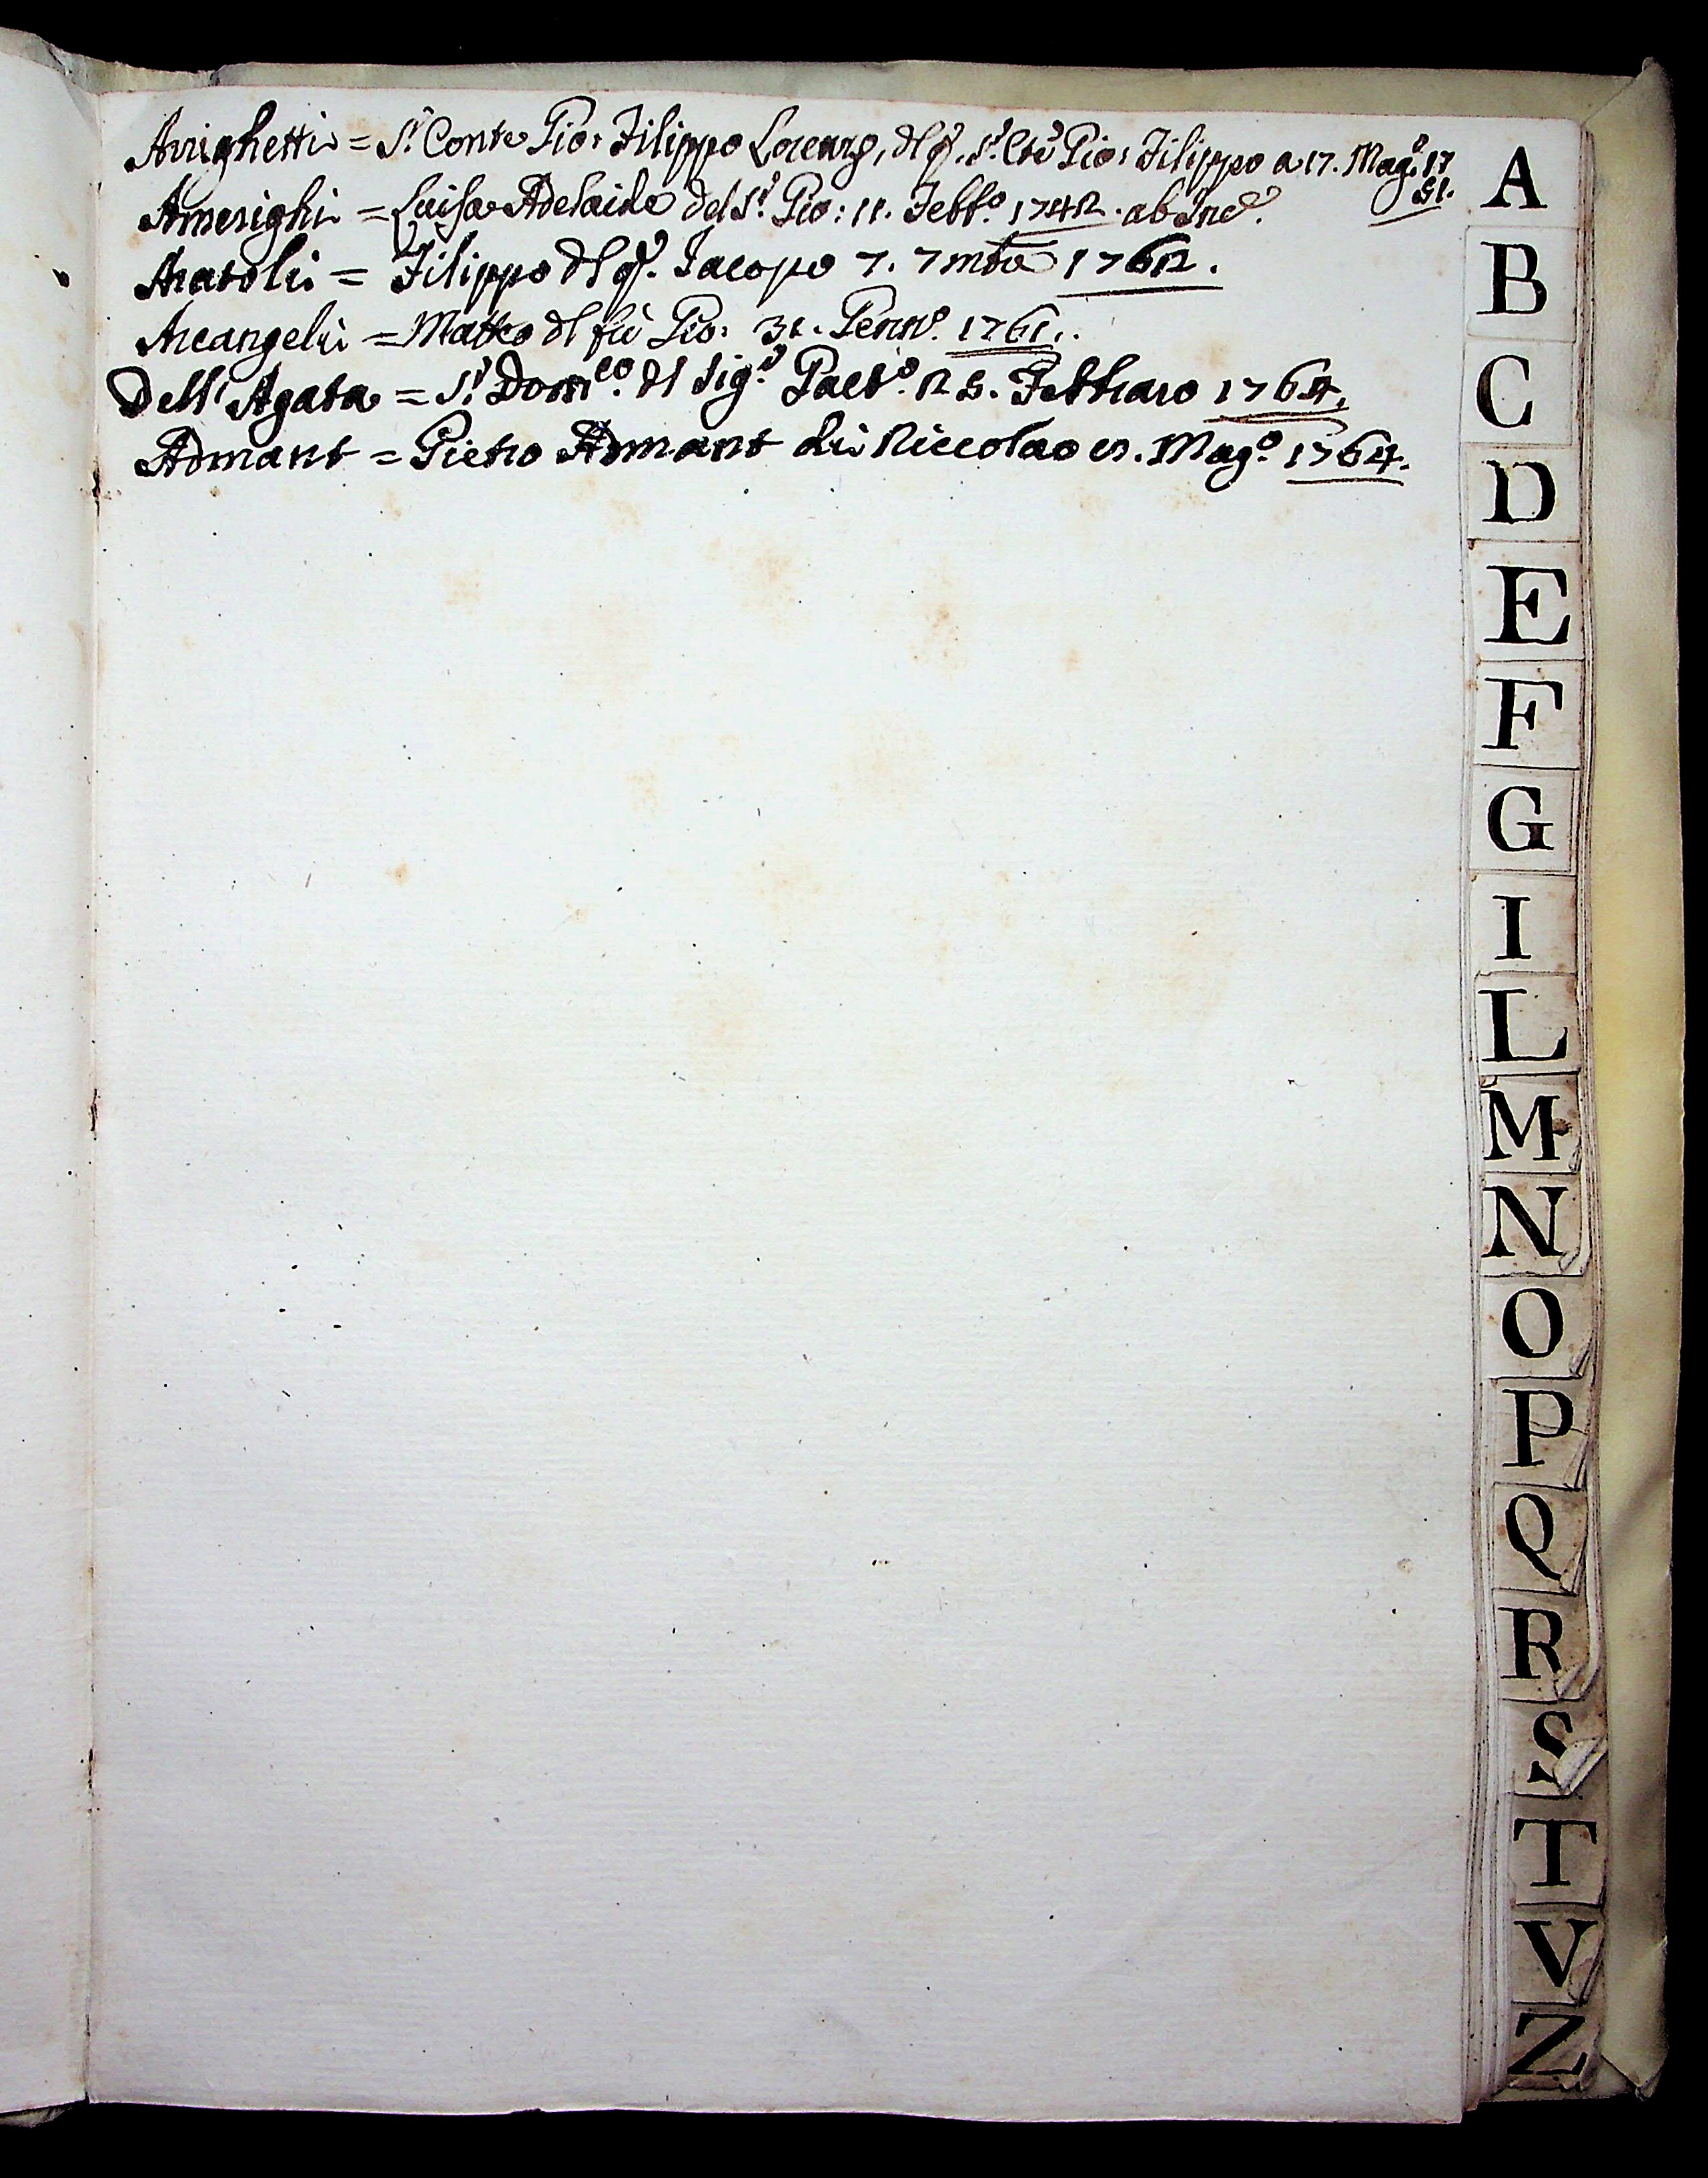 Arrighetti = S.r Conte Gio: Filippo Lorenzo, dl q. S.r Cte Gio: Filippo a 17. Mag.o 17
51.
Amerighi = Luisa Adelaide del S.r Gio: 11. Febb.o 1742. ab Inc.e
Anatoli = Filippo dl q. Iacopo 7. 7mbre 1762.
Arcangeli = Matteo dl fù Gio: 31. Genn.o 1761.
Dell' Agata = S.r Dom.co dl Sig.r Gaet.o 25. Febbraro 1764.
Admant = Pietro Admant di Niccolao Mag.o 1764.
A
B
C
D
E
F
G
I
L
M
N
O
P
Q
R
S
T
V
Z